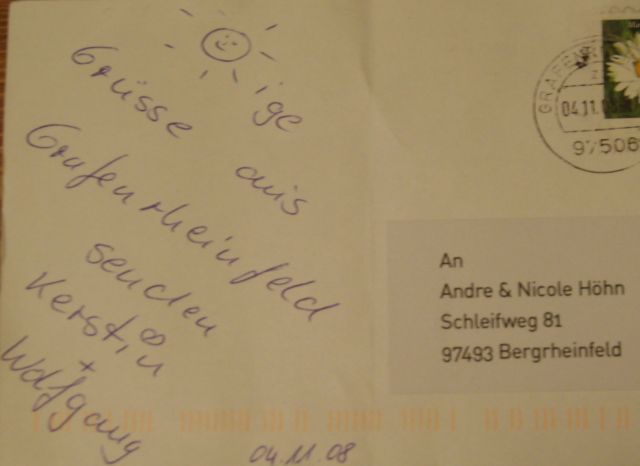 ige
Grüsse aus
Grafenrheinfeld
senden
Kerstin
+
Wolfgang
04.11.08
GRAFENR
04.11.
97506
An
Andre & Nicole Höhn
Schleifweg 81
97493 Bergrheinfeld